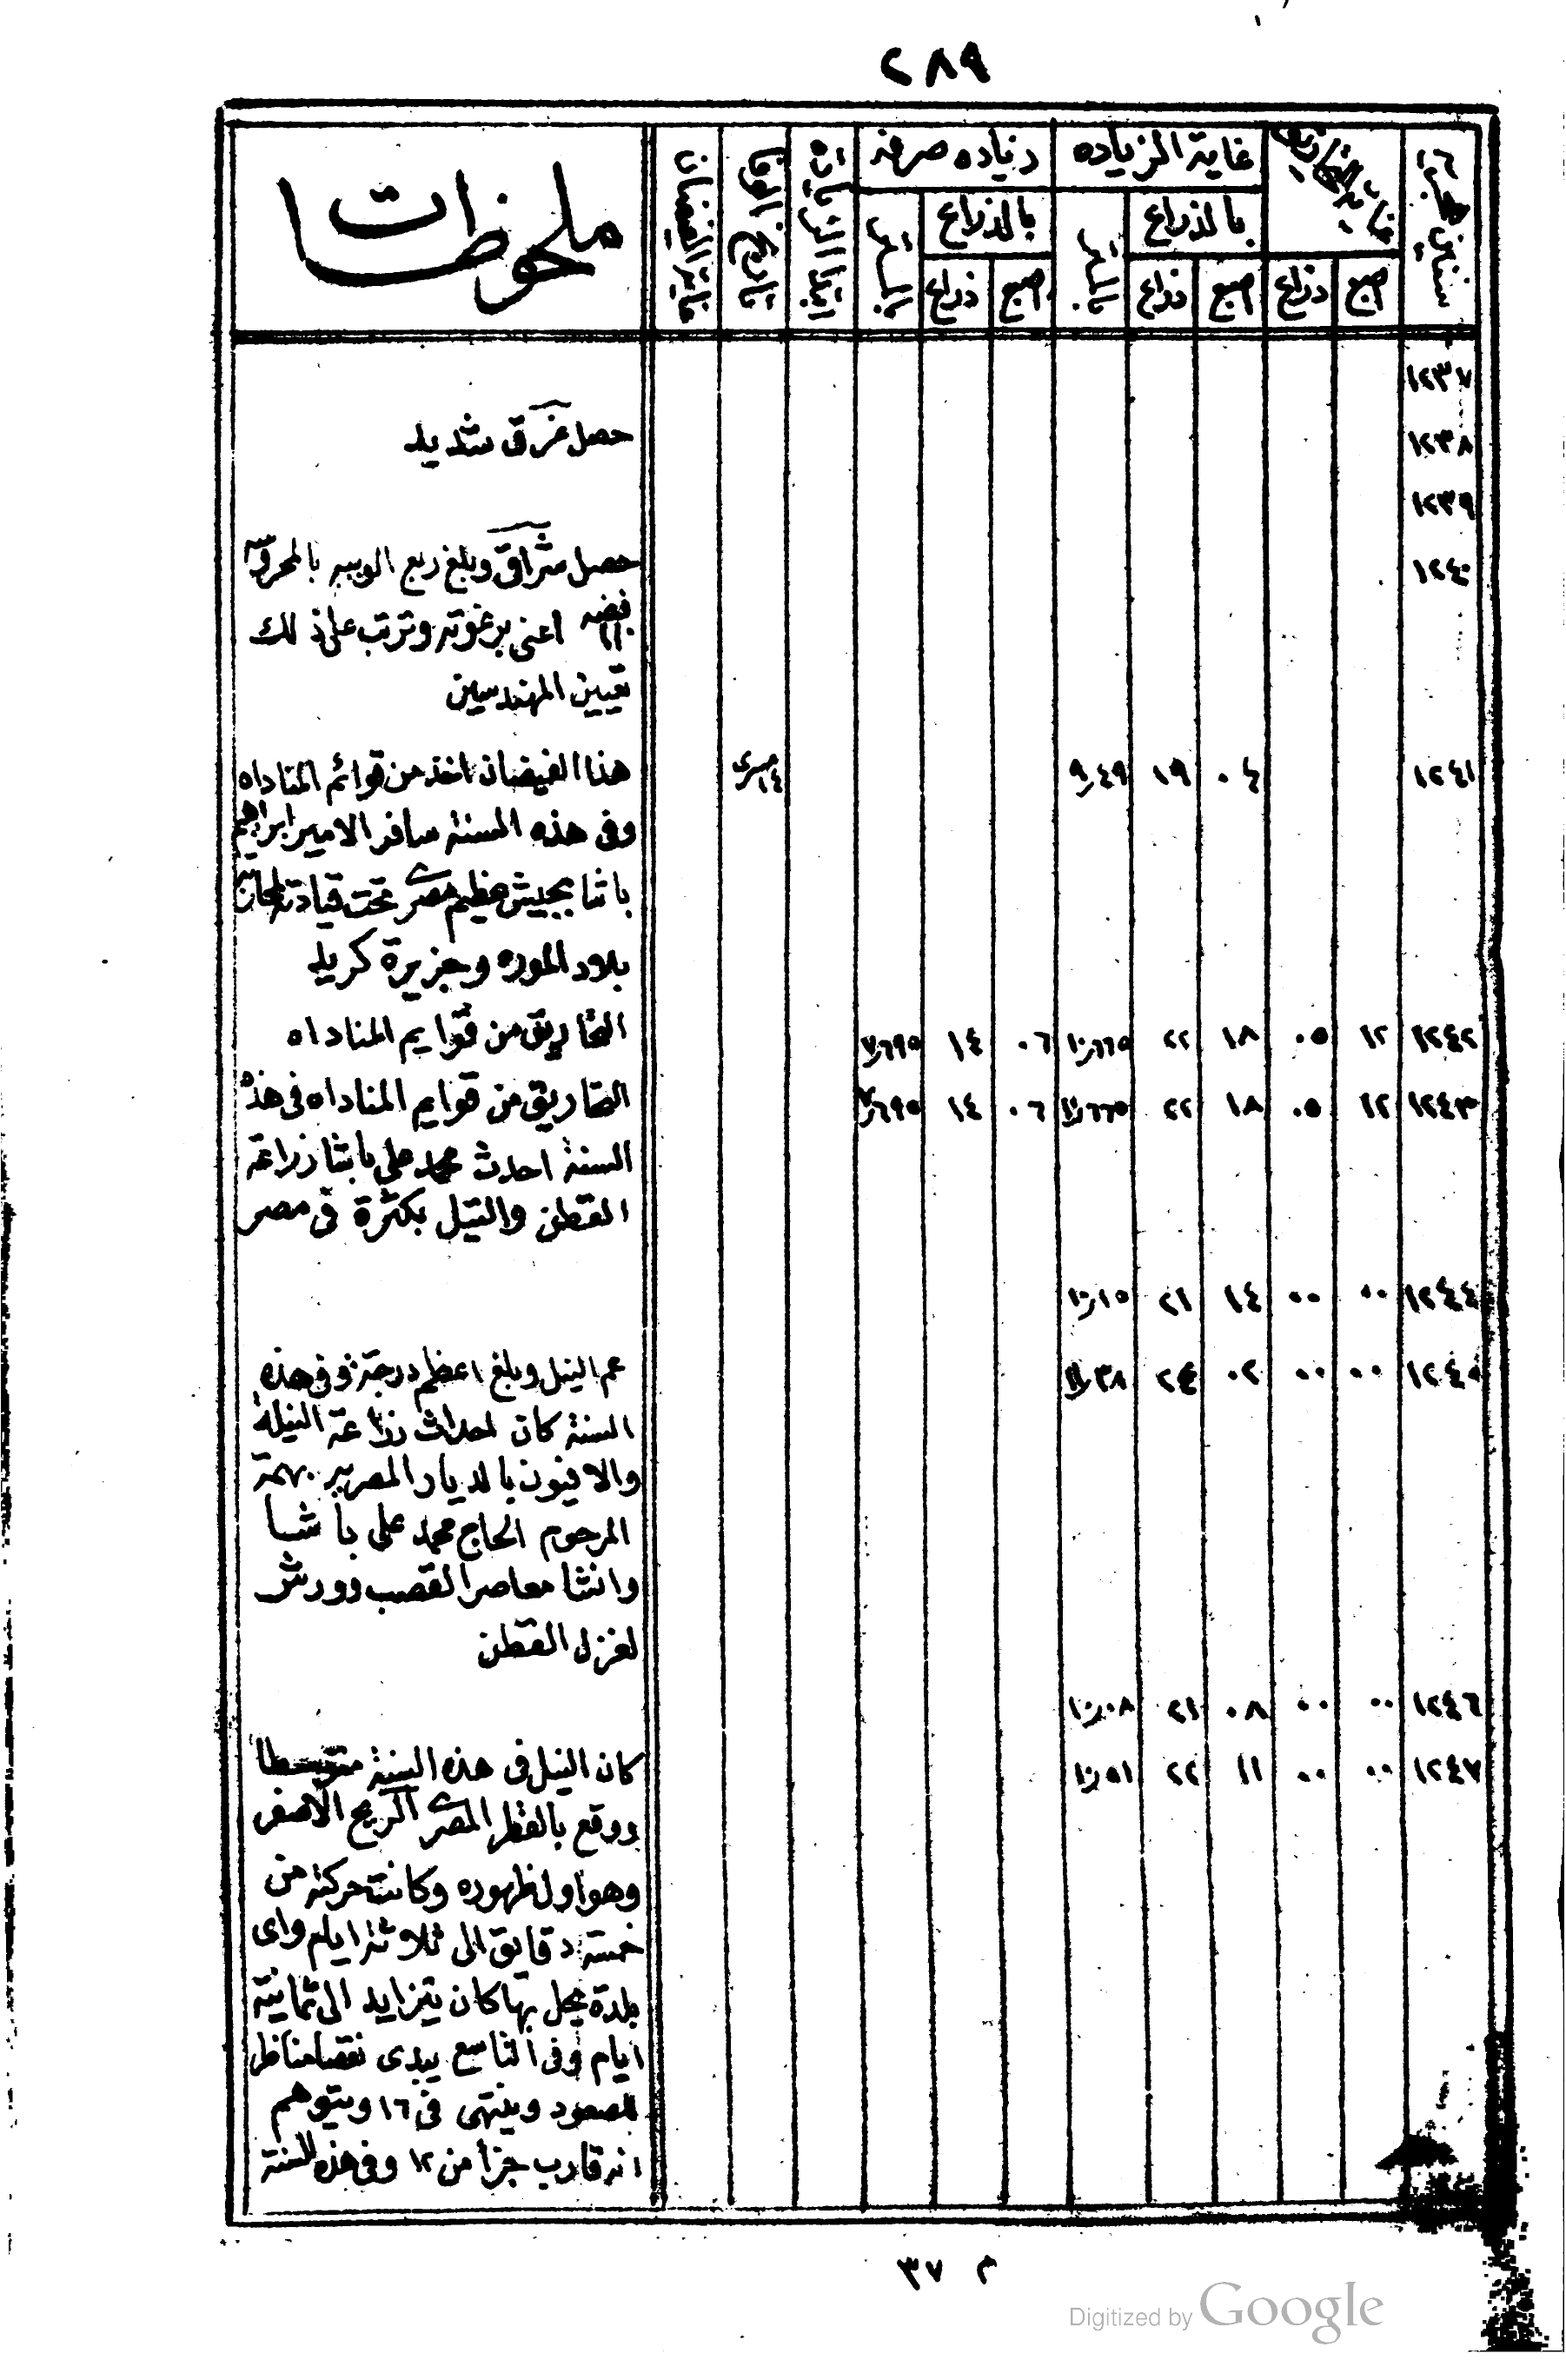 ٢٨٩
سنين هجرية
غاية التحاريق
غاية الزياده
زياده صرفه
ابتدا الزياده
تاريخ الوفا
غاية الفيضان
ملحوظات
بالذراع
بالمتر
بالذراع
بالمتر
اصبع ذراع اصبع ذراع اصبع ذراع
١٢٣٧
١٢٣٨ حصل غرق شديد
١٢٣٩
١٢٤٠ حصل شراقى وبلغ ربع الويبه بالمحروسه
١١ فضه اعنى برغوته وترتب على ذلك
تعيين المهندسين
١٢٤١ ٠٤ ١٩ ٩٫٤٩ ١٤ مسرى هذا الفيضان اخذ من قوائم المناداه
وفى هذه السنة سافر الامير ابراهيم
باشا بجيش عظيم مصرى تحت قيادته
بلاد الموره وجزيرة كريد
١٢٤٢ ١٢ ٠٥ ١٨ ٢٢ ١٠٫٦٦٥ ٠٦ ١٤ ٧٫٦٩٥ التحاريق من قوايم المناداه
١٢٤٣ ١٢ ٠٥ ١٨ ٢٢ ٠٦ ١٤ ٧٫٦٩٥ التحاريق من قوايم المناداه فى هذه
السنة احدث محمد على باشا زراعة
القطن والتيل بكثرة فى مصر
١٢٤٤ ٠٠ ٠٠ ١٤ ٢١ ١٠٫١٥
١٢٤٥ ٠٠ ٠٠ ٠٢ ٢٤ ١١٫٣٨ عم النيل وبلغ اعظم درجة وفى هذه
السنة كان احداث زراعة النيلة
والافيون بالديار المصريه بهمة
المرحوم الحاج محمد على باشا
وانشا معاصر القصب وورش
لغزل القطن
١٢٤٦ ٠٠ ٠٠ ٠٨ ٢١ ١٠٫٠٨
١٢٤٧ ٠٠ ٠٠ ١١ ٢٢ ١٠٫٥١ كان النيل فى هذه السنة متوسطا
ووقع بالقطر المصرى الريح الاصفر
وهو اول ظهوره وكانت حركته من
خمسة دقايق الى ثلاثة ايام واى
بلدة يحل بها كان يتزايد الى ثمانية
ايام وفى التاسع يبدى نقصا مناظر
للصعود وينتهى فى ١٦ ويتوهم
انه قارب جزأ من ١٢ وفى هذه السنة
م ٣٧
Digitized by Google